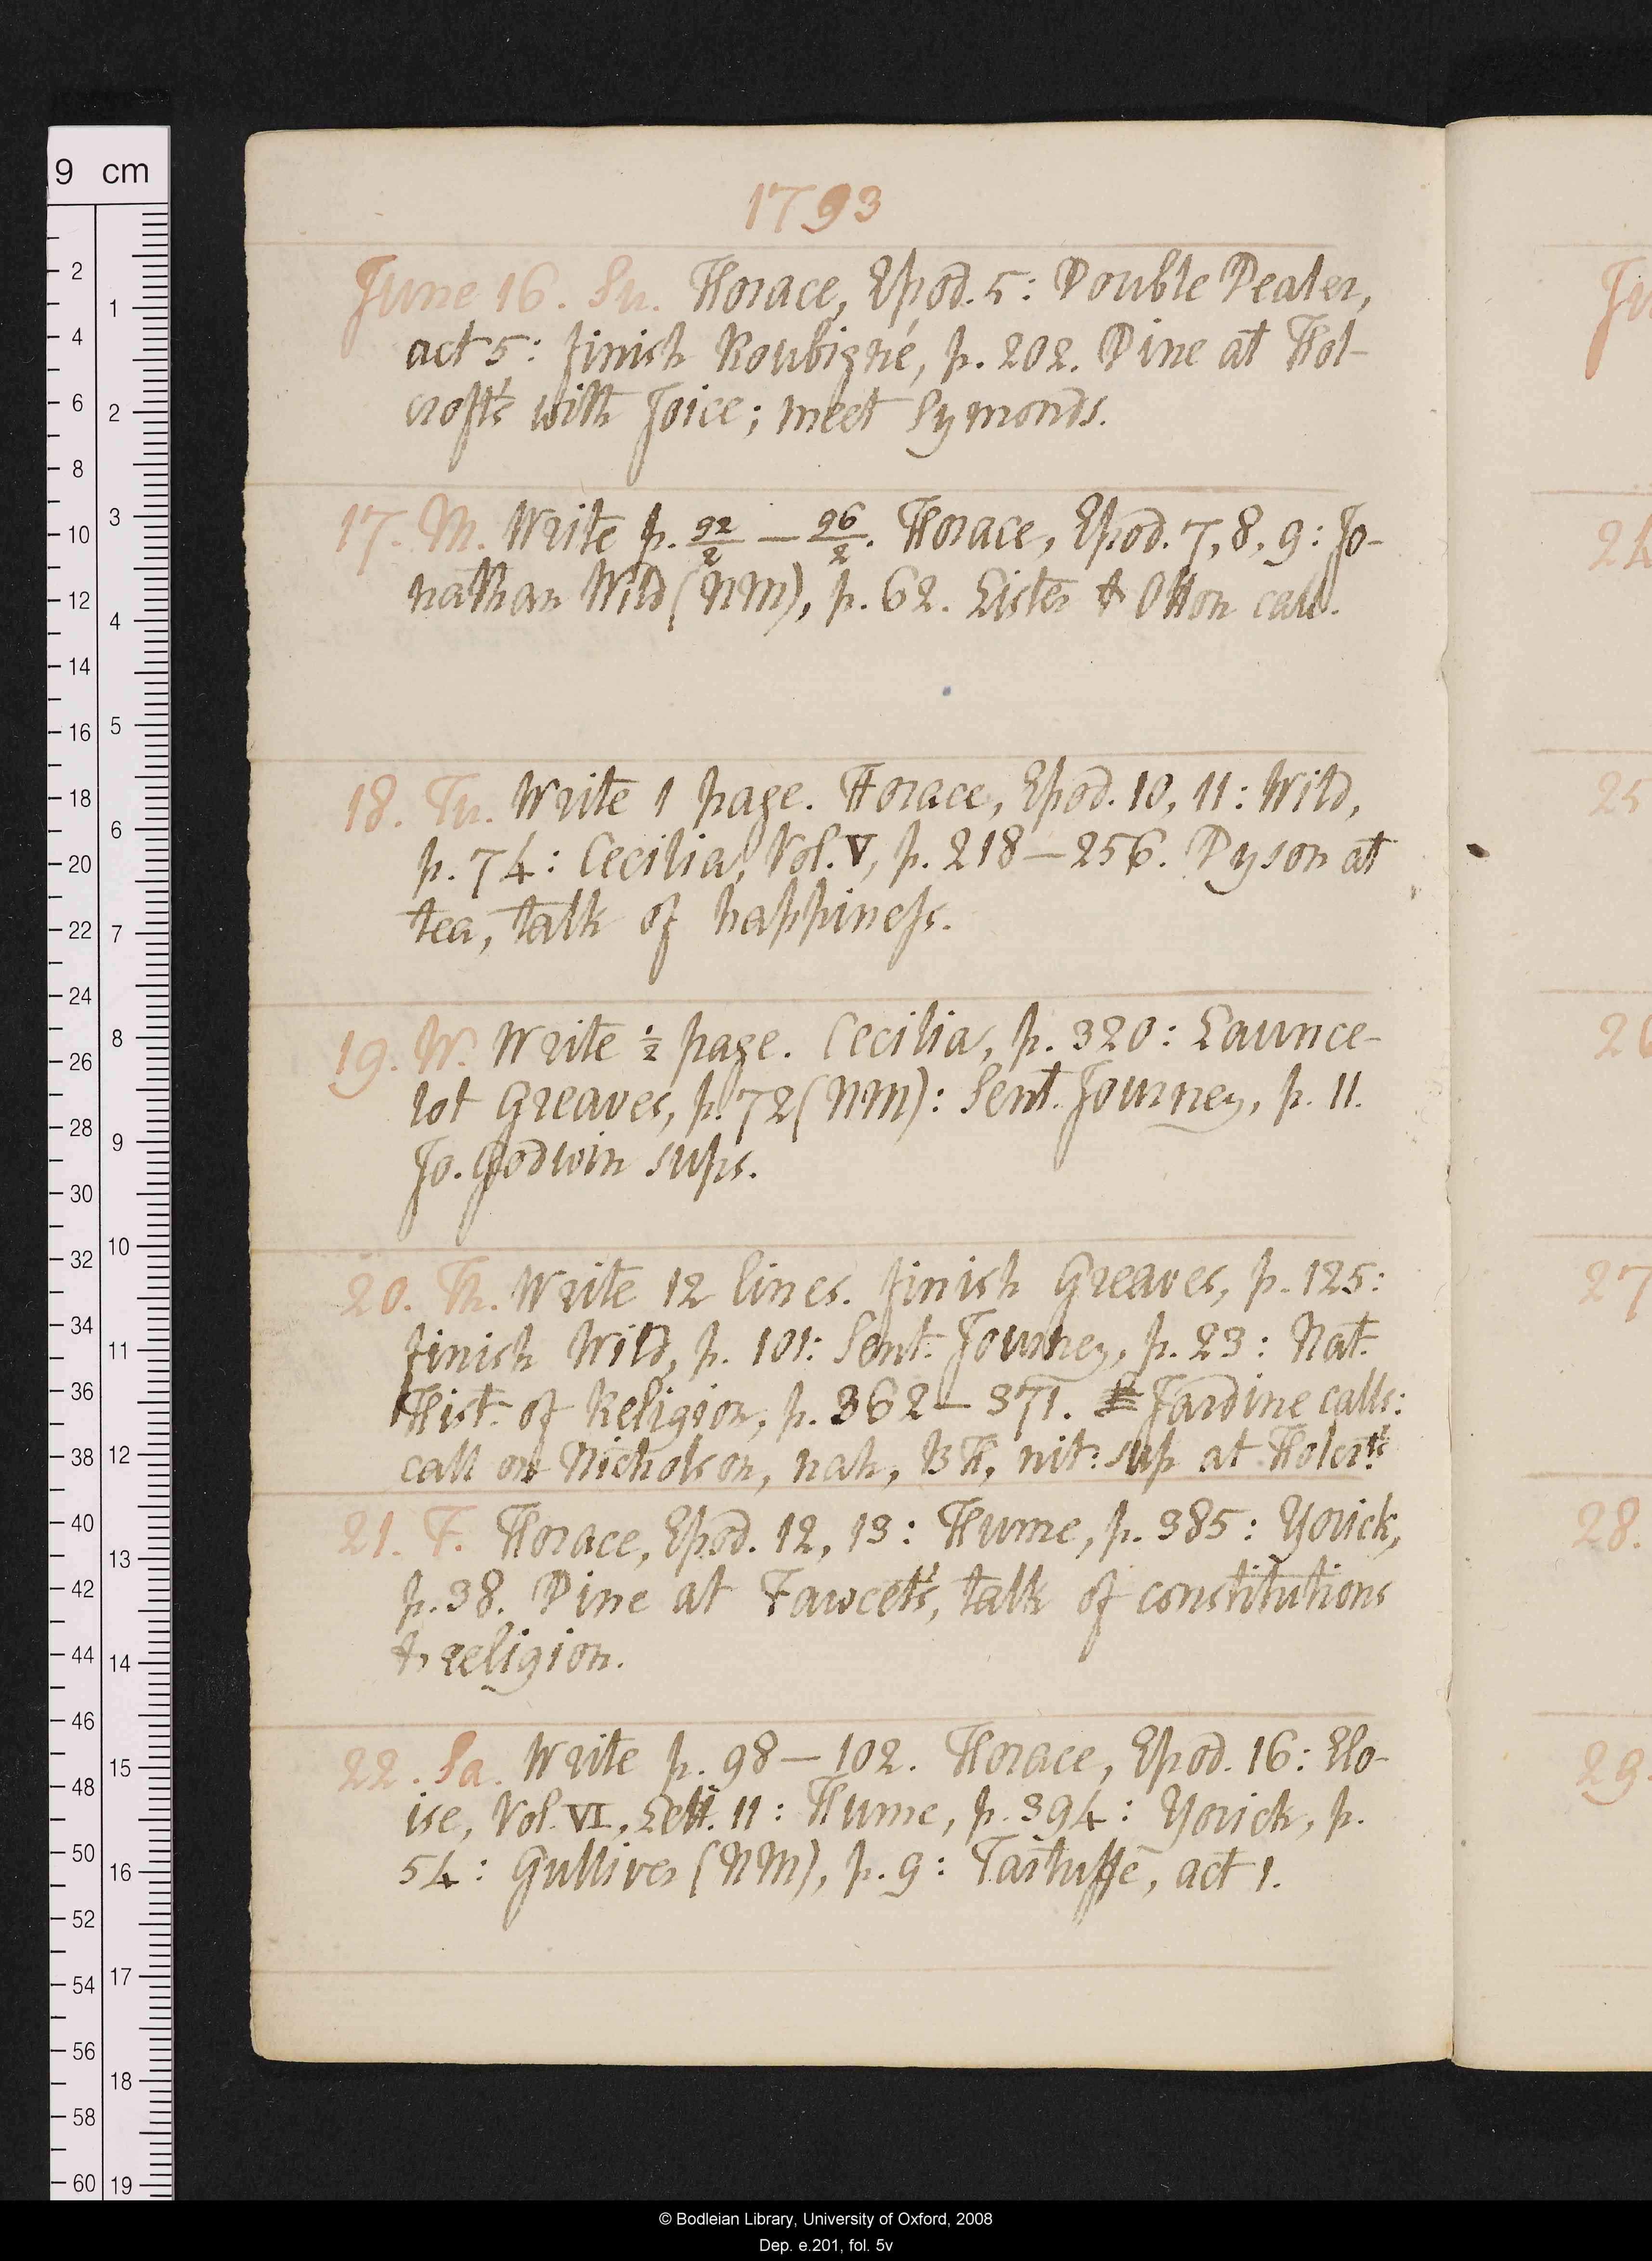 1793
June 16. Su. Horace, Epod. 5: Double Dealer,
act 5: finish Roubigné, p. 202. Dine at Hol-
croft's with Joice; meet Symonds.
17. M. Write p. 92/2 — 96/2. Horace, Epod. 7, 8, 9: Jo-
nathan Wild (NM), p. 62. Lister & Otton call.
18. Tu. Write 1 page. Horace, Epod. 10, 11: Wild,
p. 74: Cecilia, Vol. V, p. 218—256. Dyson at
tea, talk of happiness.
19. W. Write ½ page. Cecilia, p. 320: Launce-
lot Greaves, p. 72 (NM): Sent. Journey, p. 11.
Jo. Godwin sups.
20. Th. Write 12 lines. finish Greaves, p. 125:
finish Wild, p. 101: Sent. Journey, p. 23: Nat.
Hist. of Religion, p. 362—371. Jardine calls:
call on Nicholson, nah, BH, nit: sup at Holcrt's
21. F. Horace, Epod. 12, 13: Hume, p. 385: Yorick,
p. 38. Dine at Fawcet's, talk of constitutions
& religion.
22. Sa. Write p. 98—102. Horace, Epod. 16: Elo-
ise, Vol. VI, Lett. 11: Hume, p. 394: Yorick, p.
54: Gulliver (NM), p. 9: Tartuffe, act 1.
Ju
24
25
26
27
28.
29.
9 cm
2
4
6
8
10
12
14
16
18
20
22
24
26
28
30
32
34
36
38
40
42
44
46
48
50
52
54
56
58
60
1
2
3
4
5
6
7
8
9
10
11
12
13
14
15
16
17
18
19
© Bodleian Library, University of Oxford, 2008
Dep. e.201, fol. 5v